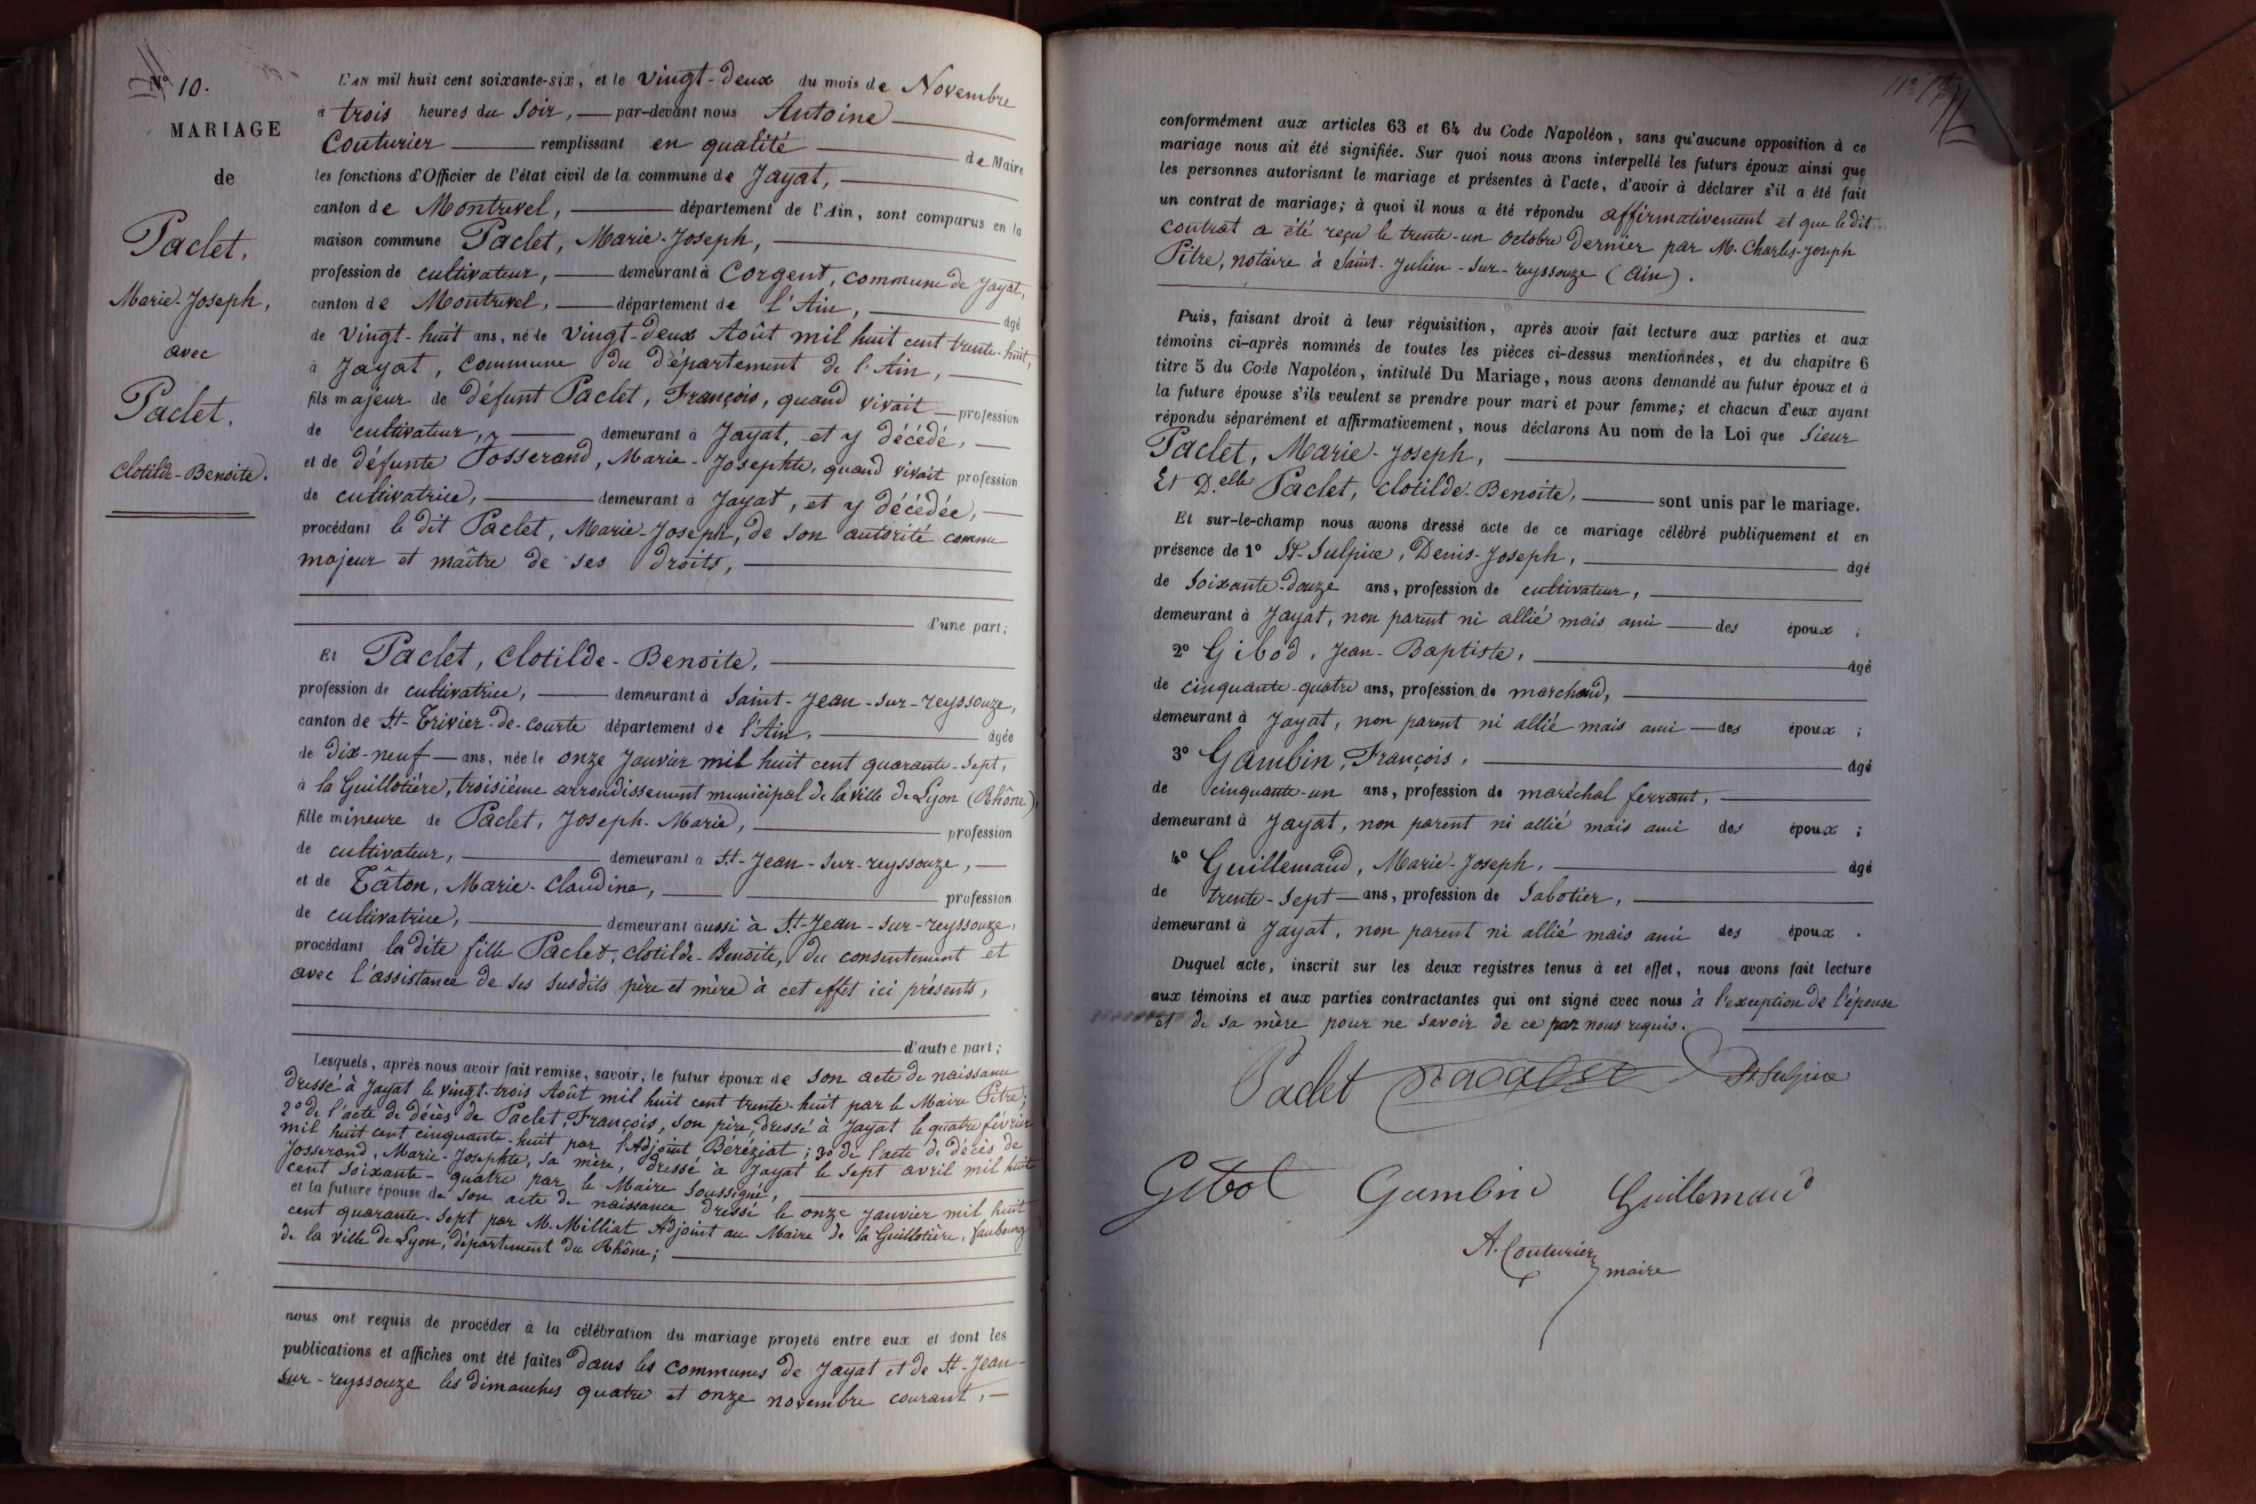 N° 10.
MARIAGE
de
Paclet,
Marie-Joseph,
avec
Paclet,
Clotilde-Benoite.
L'AN mil huit cent soixante-six, et le vingt-deux du mois de Novembre
à trois heures du soir, par-devant nous Antoine
Couturier remplissant en qualité de Maire
les fonctions d'Officier de l'état civil de la commune de Jayat,
canton de Montrevel, département de l'Ain, sont comparus en la
maison commune Paclet, Marie-Joseph,
profession de cultivateur, demeurant à Corgent, commune de Jayat,
canton de Montrevel, département de l'Ain, âgé
de vingt-huit ans, né le vingt-deux Août mil huit cent trente-huit,
à Jayat, commune du département de l'Ain,
fils majeur de défunt Paclet, François, quand vivait profession
de cultivateur, demeurant à Jayat, et y décédé,
et de défunte Josserand, Marie-Josephte, quand vivait profession
de cultivatrice, demeurant à Jayat, et y décédée,
procédant le dit Paclet, Marie-Joseph, de son autorité comme
majeur et maître de ses droits,
d'une part;
Et Paclet, Clotilde-Benoite,
profession de cultivatrice, demeurant à Saint-Jean-sur-reyssouze,
canton de St-Trivier-de-courte département de l'Ain, âgée
de dix-neuf ans, née le onze Janvier mil huit cent quarante-sept,
à la Guillotière, troisième arrondissement municipal de la ville de Lyon (Rhône),
fille mineure de Paclet, Joseph-Marie, profession
de cultivateur, demeurant à St-Jean-sur-reyssouze,
et de Tâton, Marie-Claudine, profession
de cultivatrice, demeurant aussi à St-Jean-sur-reyssouze,
procédant la dite fille Paclet, Clotilde-Benoite, du consentement et
avec l'assistance de ses susdits père et mère à cet effet ici présents,
d'autre part;
Lesquels, après nous avoir fait remise, savoir, le futur époux de son acte de naissance
dressé à Jayat le vingt-trois Août mil huit cent trente-huit par le Maire Pitre;
2° de l'acte de décès de Paclet, François, son père, dressé à Jayat le quatre février
mil huit cent cinquante-huit par l'Adjoint Béréziat; 3° de l'acte de décès de
Josserand, Marie-Josephte, sa mère, dressé à Jayat le sept avril mil huit
cent soixante-quatre par le Maire soussigné,
et la future épouse de son acte de naissance dressé le onze Janvier mil huit
cent quarante-sept par M. Milliat Adjoint au Maire de la Guillotière, faubourg
de la ville de Lyon, département du Rhône;
nous ont requis de procéder à la célébration du mariage projeté entre eux et dont les
publications et affiches ont été faites dans les communes de Jayat et de St-Jean-
sur-reyssouze les dimanches quatre et onze novembre courant,
conformément aux articles 63 et 64 du Code Napoléon, sans qu'aucune opposition à ce
mariage nous ait été signifiée. Sur quoi nous avons interpellé les futurs époux ainsi que
les personnes autorisant le mariage et présentes à l'acte, d'avoir à déclarer s'il a été fait
un contrat de mariage; à quoi il nous a été répondu affirmativement et que le dit
contrat a été reçu le trente-un octobre dernier par M. Charles-Joseph
Pitre, notaire à Saint-Julien-sur-reyssouze (Ain).
Puis, faisant droit à leur réquisition, après avoir fait lecture aux parties et aux
témoins ci-après nommés de toutes les pièces ci-dessus mentionnées, et du chapitre 6
titre 5 du Code Napoléon, intitulé Du Mariage, nous avons demandé au futur époux et à
la future épouse s'ils veulent se prendre pour mari et pour femme; et chacun d'eux ayant
répondu séparément et affirmativement, nous déclarons Au nom de la Loi que sieur
Paclet, Marie-Joseph,
Et D.elle Paclet, Clotilde-Benoite, sont unis par le mariage.
Et sur-le-champ nous avons dressé acte de ce mariage célébré publiquement et en
présence de 1° St-Sulpice, Denis-Joseph, âgé
de soixante-douze ans, profession de cultivateur,
demeurant à Jayat, non parent ni allié mais ami des époux;
2° Gibod, Jean-Baptiste, âgé
de cinquante-quatre ans, profession de marchand,
demeurant à Jayat, non parent ni allié mais ami des époux;
3° Gambin, François, âgé
de cinquante-un ans, profession de maréchal ferrant,
demeurant à Jayat, non parent ni allié mais ami des époux;
4° Guillemaud, Marie-Joseph, âgé
de trente-sept ans, profession de sabotier,
demeurant à Jayat, non parent ni allié mais ami des époux.
Duquel acte, inscrit sur les deux registres tenus à cet effet, nous avons fait lecture
aux témoins et aux parties contractantes qui ont signé avec nous à l'exception de l'épouse
et de sa mère pour ne savoir de ce par nous requis.
Paclet St Sulpice
Gibod Gambin Guillemaud
A. Couturier
maire